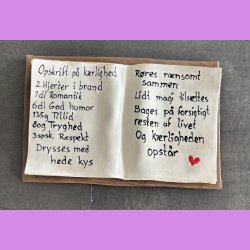 Opskrift på kærlighed
2 Hjerter i brand
7dl Romantik
6dl God humor
135g Tillid
80g Tryghed
3spsk. Respekt
Drysses med
hede kys
Røres nænsomt
sammen
Lidt magi tilsættes
Bages på forsigtigt
resten af livet
Og kærligheden
opstår